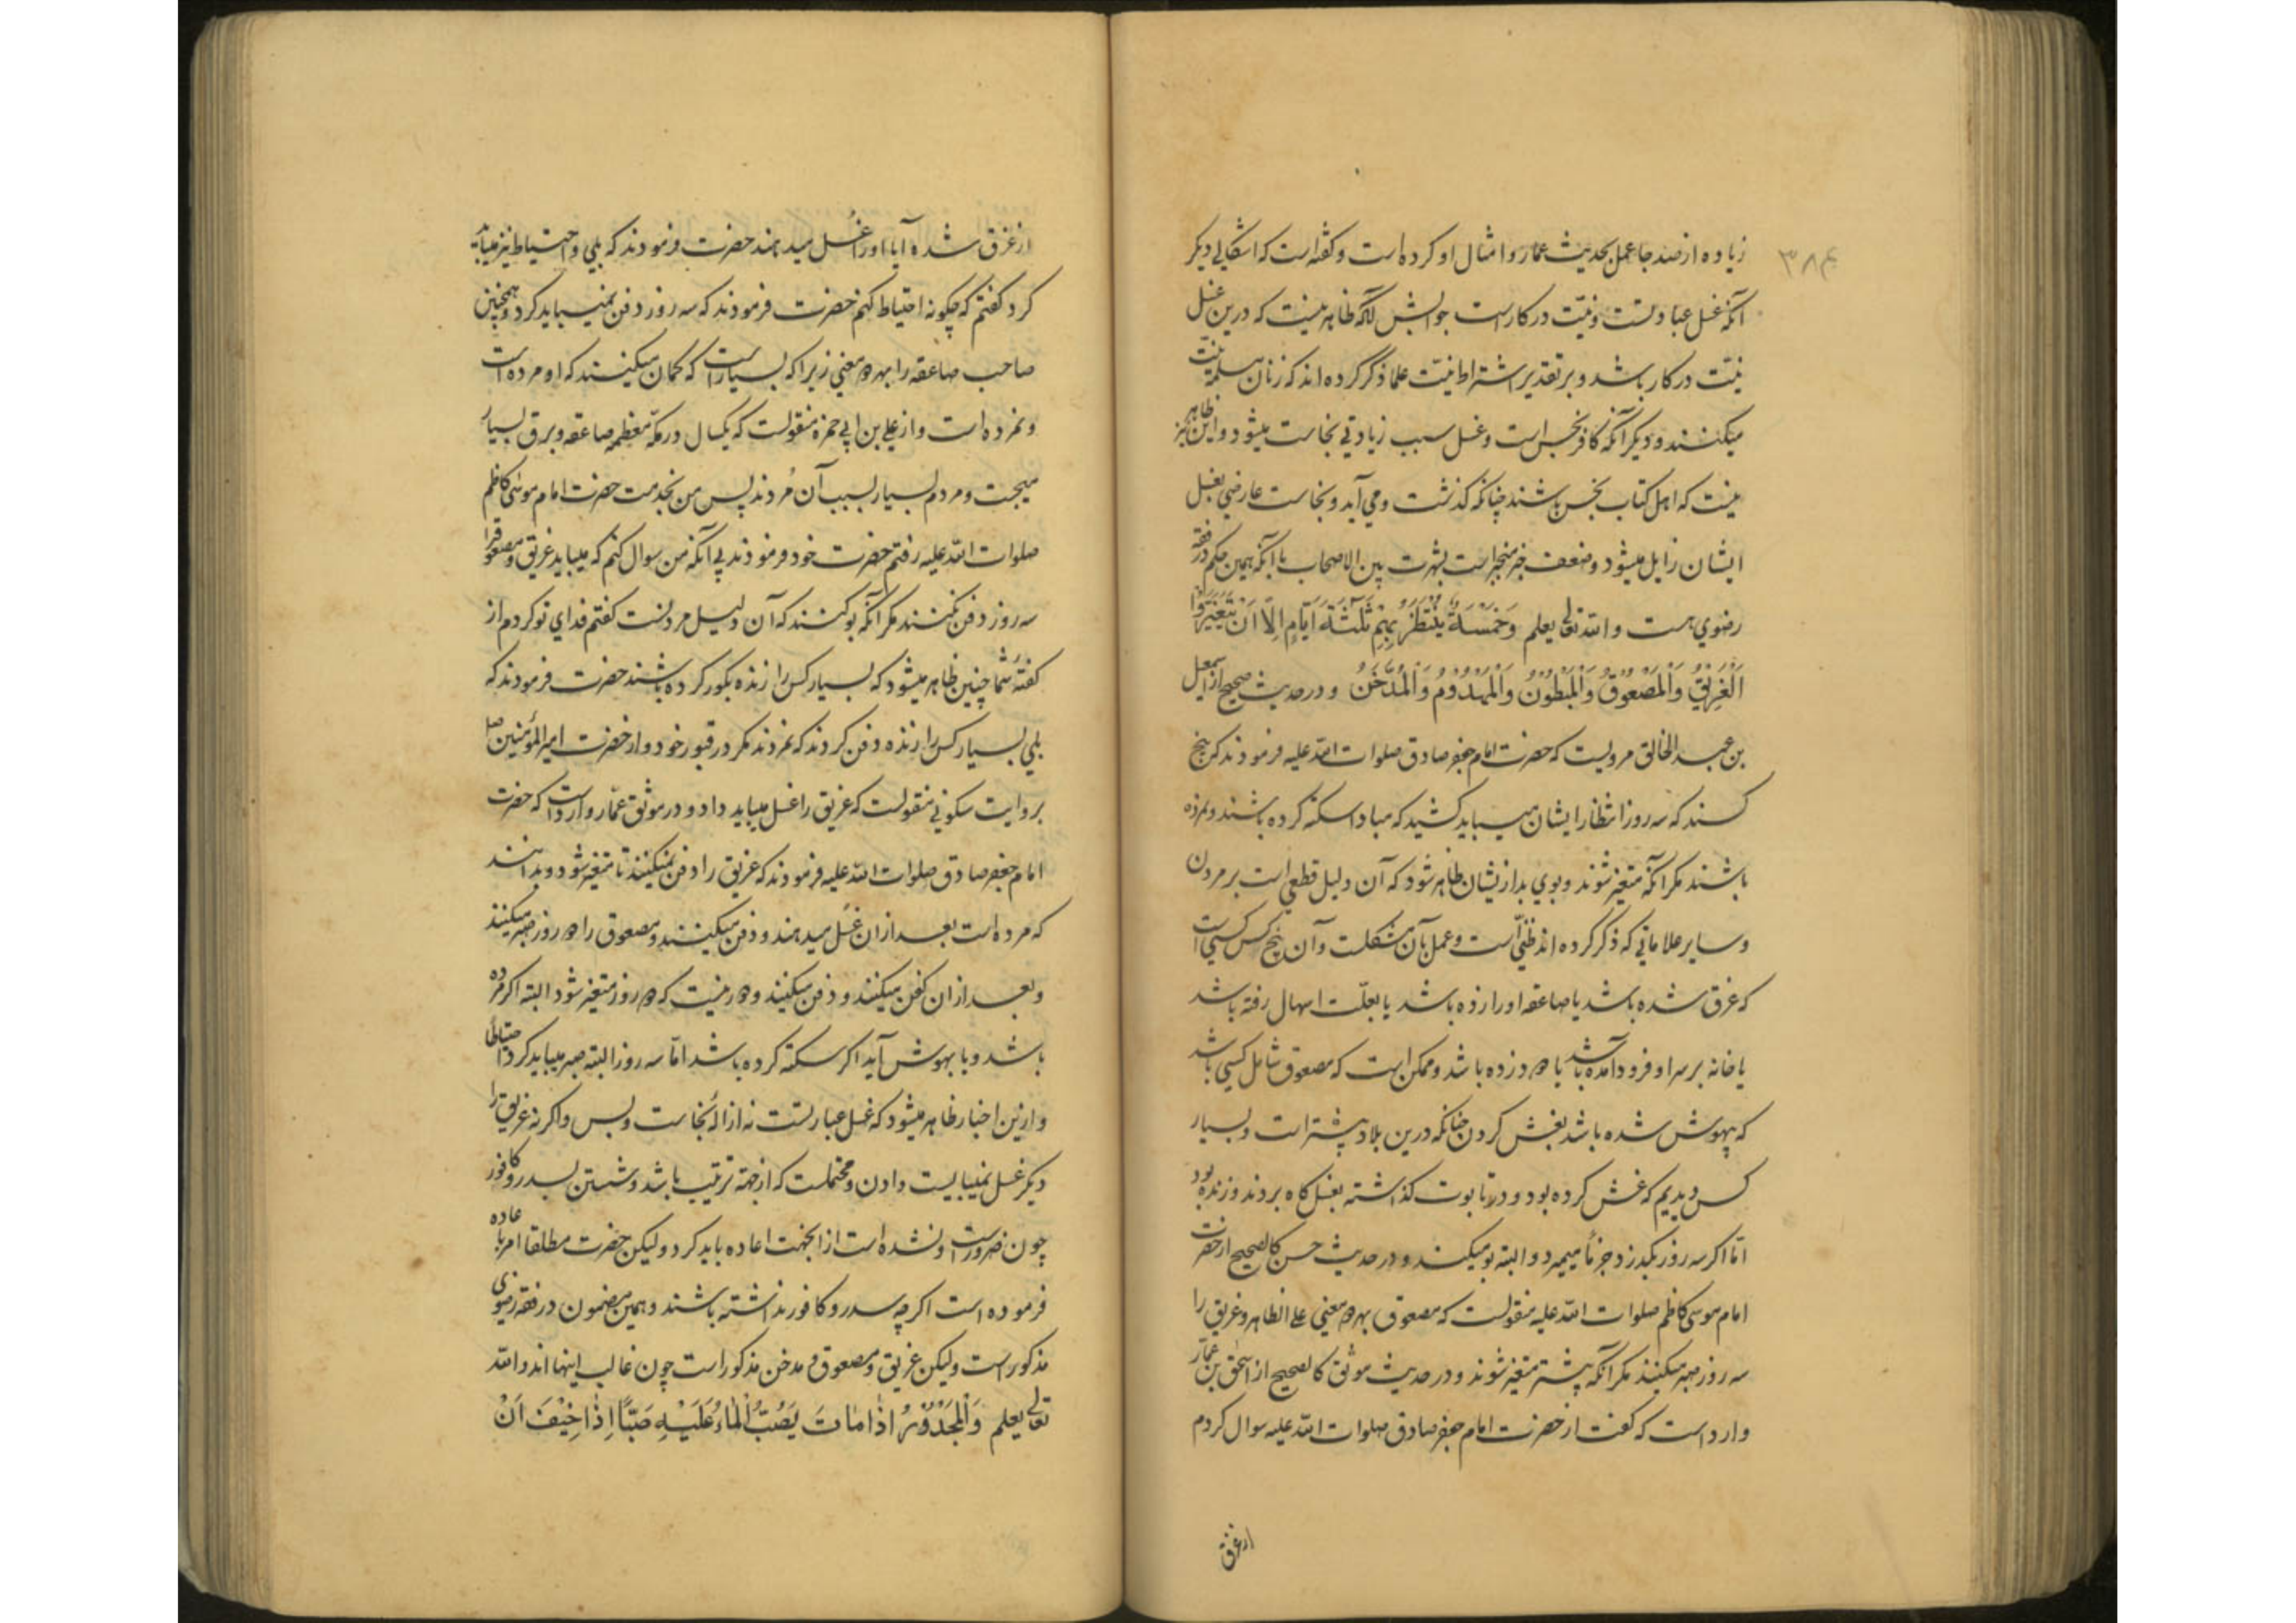 ۳۸۴
زیاده از صد جا عمل بحدیث عمار و امثال او کرده است و کفته است که اشکالی دیکر
آنکه غسل عبادتست و نیت در کار است جوابش آنکه ظاهر نیست که درین غسل
نیّت در کار باشد و بر تقدیر اشتراط نیّت علما ذکر کرده اند که زنان مسلمه نیّت
میکنند و دیکر آنکه کافر نجس است و غسل سبب زیادتی نجاست میشود و این نیز ظاهر
نیست که اهل کتاب نجس باشند چنانکه کذشت و می آید و نجاست عارضی بغسل
ایشان زایل میشود و ضعف خبر منجبر است بشهرت بین الاصحاب با آنکه همین حکم در فقه
رضوی هست و الله تعالی یعلم وَخَمْسَةٌ يُنْتَظَرُ بِهِمْ ثَلٰثَةَ اَيّامٍ اِلّا اَنْ يَتَغَيَّرُوا
اَلْغَرِيْقُ وَالْمَصْعُوْقُ وَالْمَبْطُوْنُ وَالْمَهْدُوْمُ وَالْمُدَخَّنُ و در حدیث صحیح از اسمعیل
بن عبد الخالق مرویست که حضرت امام جعفر صادق صلوات الله علیه فرمودند که پنج
کسند که سه روز انتظار ایشان میباید کشید که مبادا سکته کرده باشند و نمرده
باشند مکر آنکه متغیر شوند و بوی بد از ایشان ظاهر شود که آن دلیل قطعی است بر مردن
و سایر علاماتی که ذکر کرده اند ظنّی است و عمل بآن مشکلست و آن پنج کس کسی است
که غرق شده باشد یا صاعقه او را زده باشد یا بعلّت اسهال رفته باشد
یا خانه بر سر او فرود آمده باشد یا دود زده باشد و ممکن است که مصعوق شامل کسی باشد
که بیهوش شده باشد بغش کردن چنانکه درین بلاد بیشتر است و بسیار
کس دیدیم که غش کرده بود و در تابوت کذاشته بغسل کاه بردند و زنده بود
امّا اکر سه روز بکذرد جزماً میمیرد و البته بو میکند و در حدیث حسن کالصحیح از حضرت
امام موسی کاظم صلوات الله علیه منقولست که مصعوق بهر دو معنی علی الظاهر و غریق را
سه روز صبر میکنند مکر آنکه پیشتر متغیر شوند و در حدیث موثق کالصحیح از اسحٰق بن عمّار
وارد است که کفت از حضرت امام جعفر صادق صلوات الله علیه سوال کردم
از غرق
از غرق شده آیا او را غُسل میدهند حضرت فرمودند که بلی و احتیاط نیز میباید
کرد کفتم که چکونه احتیاط کنم حضرت فرمودند که سه روز دفن نمیباید کرد و همچنین
صاحب صاعقه را بهر دو معنی زیرا که بسیار است که کمان میکنند که او مرده است
و نمرده است و از علی بن ابی حمزه منقولست که یکسال در مکّه معظمه صاعقه و برق بسیار
میجست و مردم بسیار بسبب آن مُردند پس من بخدمت حضرت امام موسی کاظم
صلوات الله علیه رفتم حضرت خود فرمودند بی آنکه من سوال کنم که میباید غریق و مصعوق را
سه روز دفن نکنند مکر آنکه بو کنند که آن دلیل مردنست کفتم فدای تو کردم از
کفته شما چنین ظاهر میشود که بسیار کس را زنده بکور کرده باشند حضرت فرمودند که
بلی بسیار کس را زنده دفن کردند که نمردند مکر در قبور خود و از حضرت امیر المؤمنین ص
بروایت سکونی منقولست که غریق را غسل میباید داد و در موثق عمّار وارد است که حضرت
امام جعفر صادق صلوات الله علیه فرمودند که غریق را دفن نمیکنند تا متغیر شود و بدانند
که مرده است بعد از ان غُسل میدهند و دفن میکنند و مصعوق را دو روز صبر میکنند
و بعد از ان کفن میکنند و دفن میکنند و دور نیست که دو روز متغیر شود البته اکر مرده
باشد و یا بهوش آید اکر سکته کرده باشد امّا سه روز البته صبر میباید کرد احتیاطاً
و ازین اخبار ظاهر میشود که غسل عبادتست نه ازالهٔ نجاست و بس و اکر نه غریق را
دیکر غسل نمیبایست دادن و محتملست که از جهة ترتیب باشد و شستن بسدر و کافور
چون ضرور است و نشده است از انجهت اعاده باید کرد و لیکن حضرت مطلقا امر باعاده
فرموده است اکر چه سدر و کافور نداشته باشند و همین مضمون در فقه رضوی
مذکور است و لیکن غریق و مصعوق و مدخن مذکور است چون غالب اینها اند و الله
تعالی یعلم وَالْمَجْدُوْرُ اِذٰا مٰاتَ يَصُبُّ الْمٰاءَ عَلَيْهِ صَبّاً اِذٰا خِيْفَ اَنْ